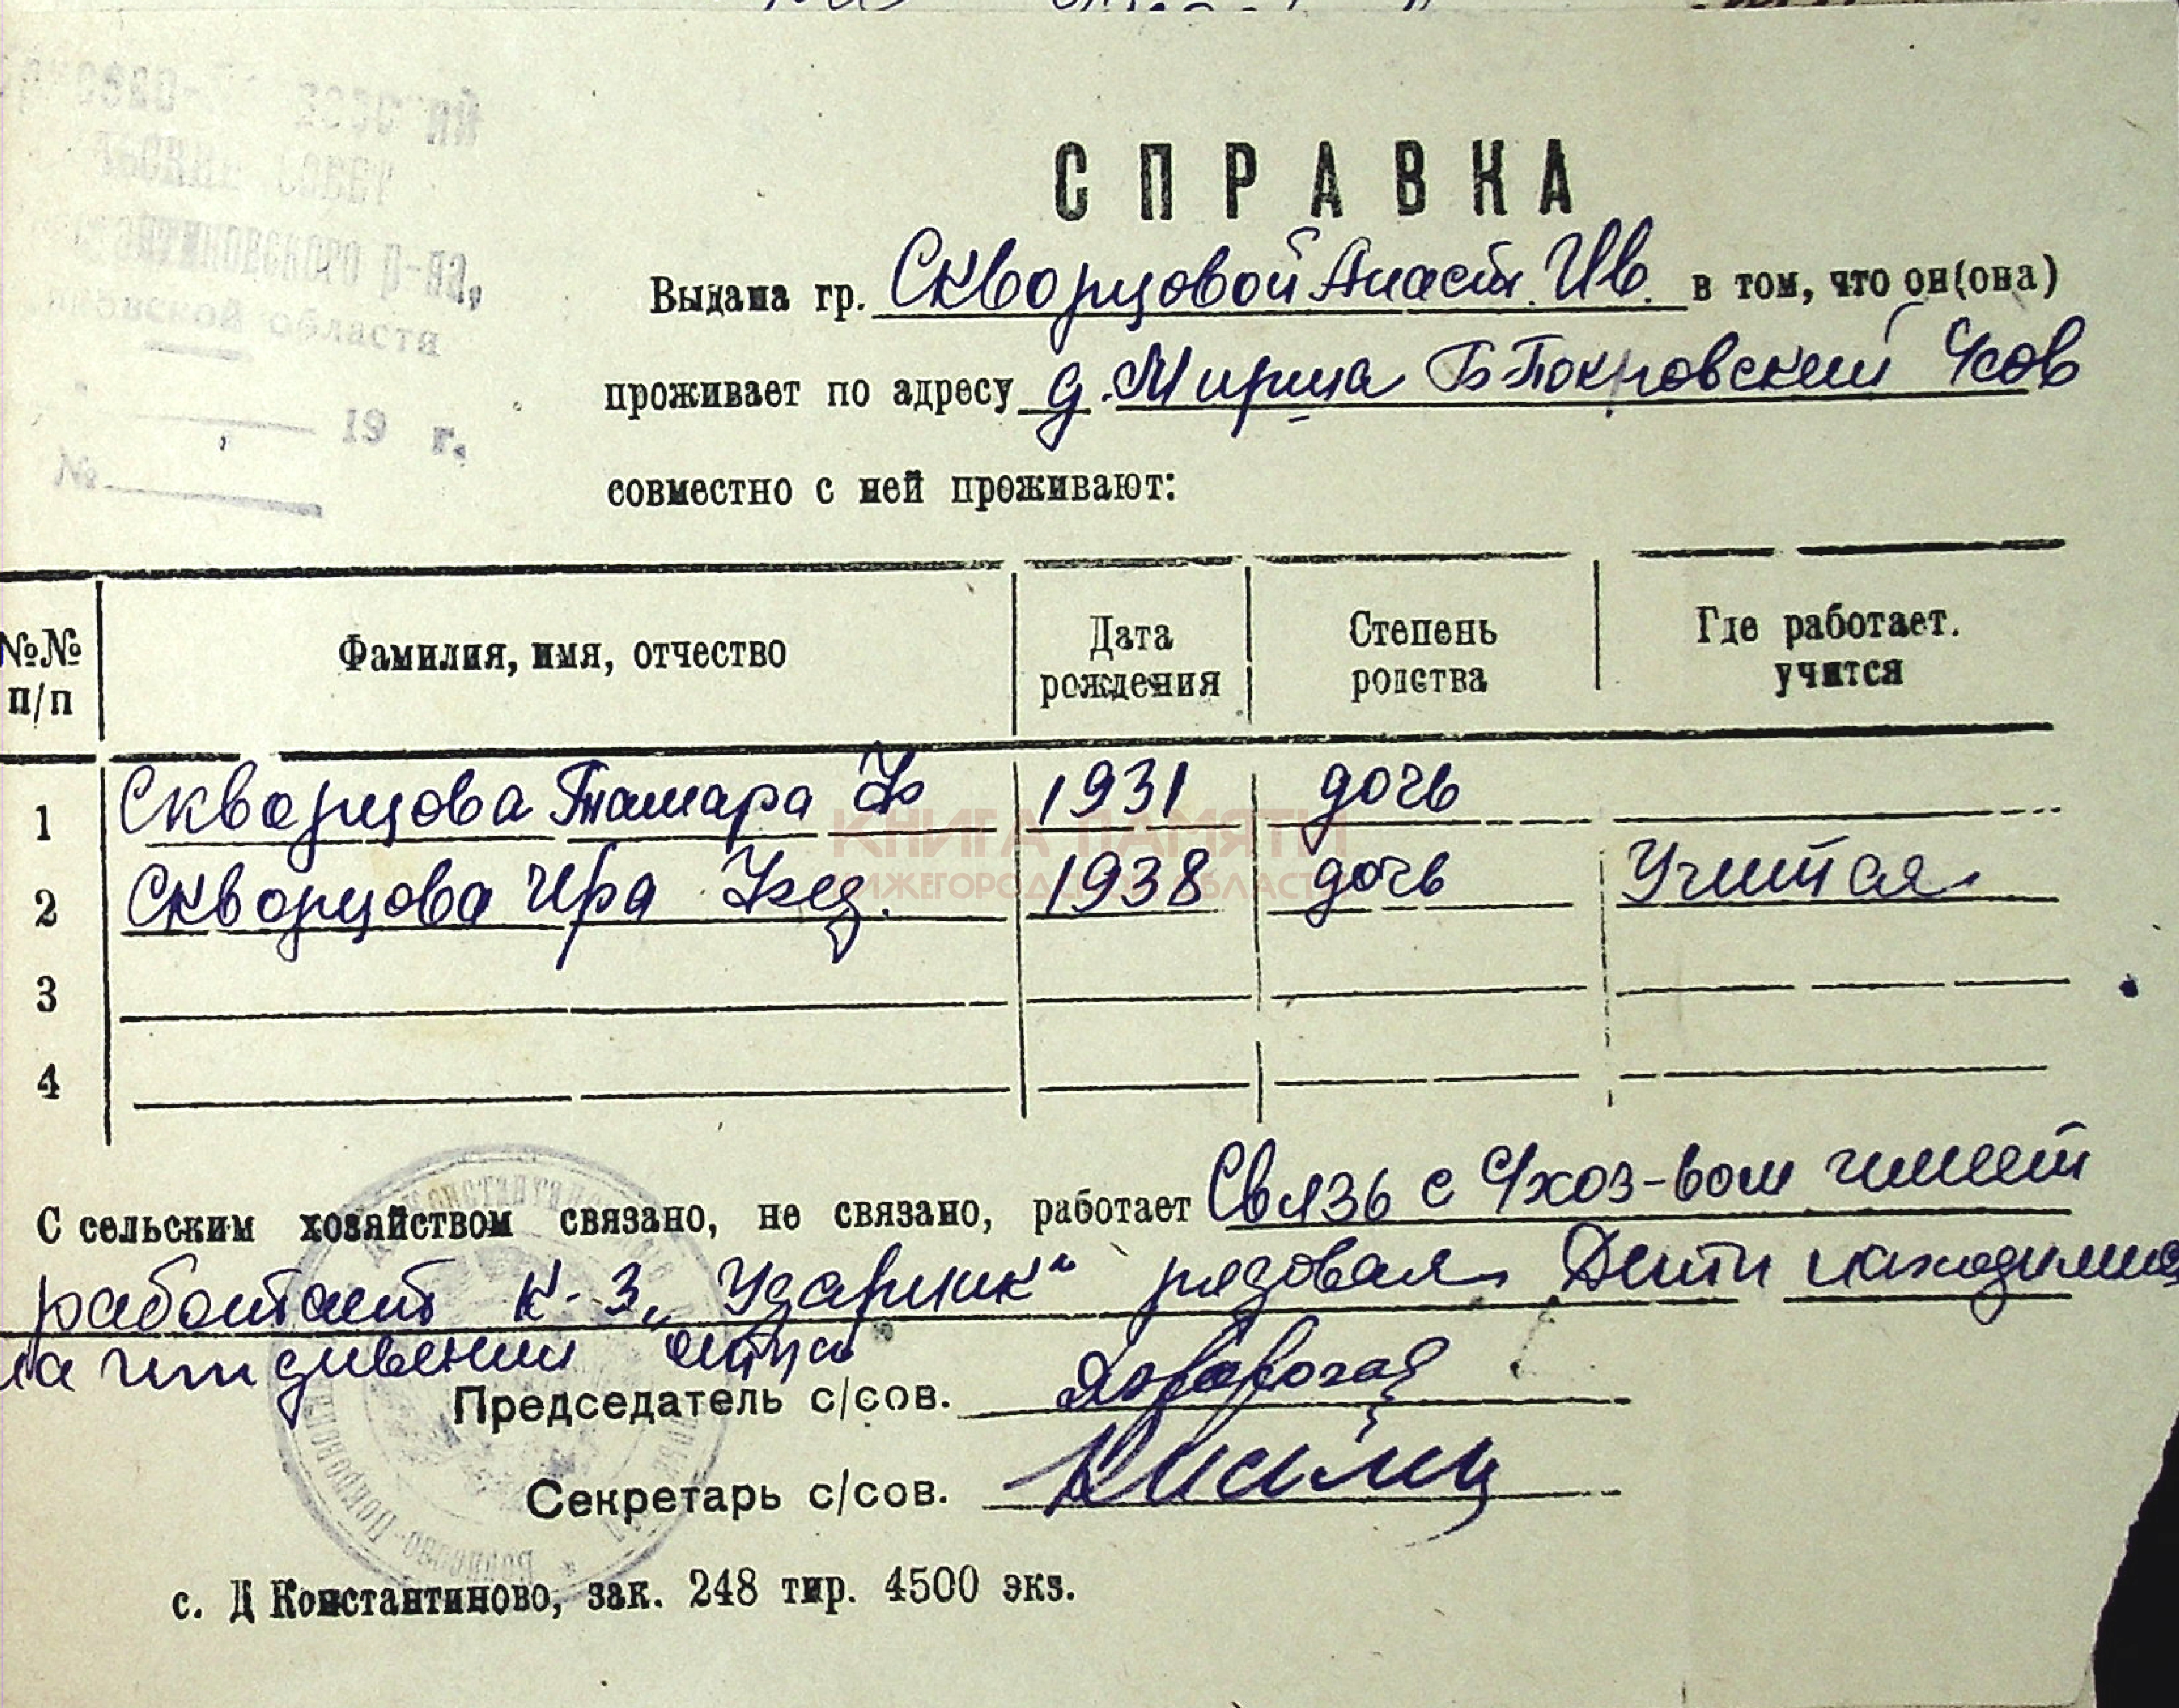 СПРАВКА
Выдана гр. Скворцовой Анаст. Ив. в том, что он(она)
проживает по адресу д. Мирша Б-Покровский с/сов
совместно с ней проживают:
р-на,
области
19 г.
№
№№ п/п
Фамилия, имя, отчество
Дата рождения
Степень родства
Где работает. учится
1 Скворцова Тамара 1931 дочь
2 Скворцова Ира 1938 дочь Учится
3
4
КНИГА ПАМЯТИ
НИЖЕГОРОДСКОЙ ОБЛАСТИ
С сельским хозяйством связано, не связано, работает Связь с с/хоз-вом имеет
работает к-з „Ударник" рядовая. Дети находились
на иждивении отца
Председатель с/сов.
Секретарь с/сов.
с. Д Константиново, зак. 248 тир. 4500 экз.